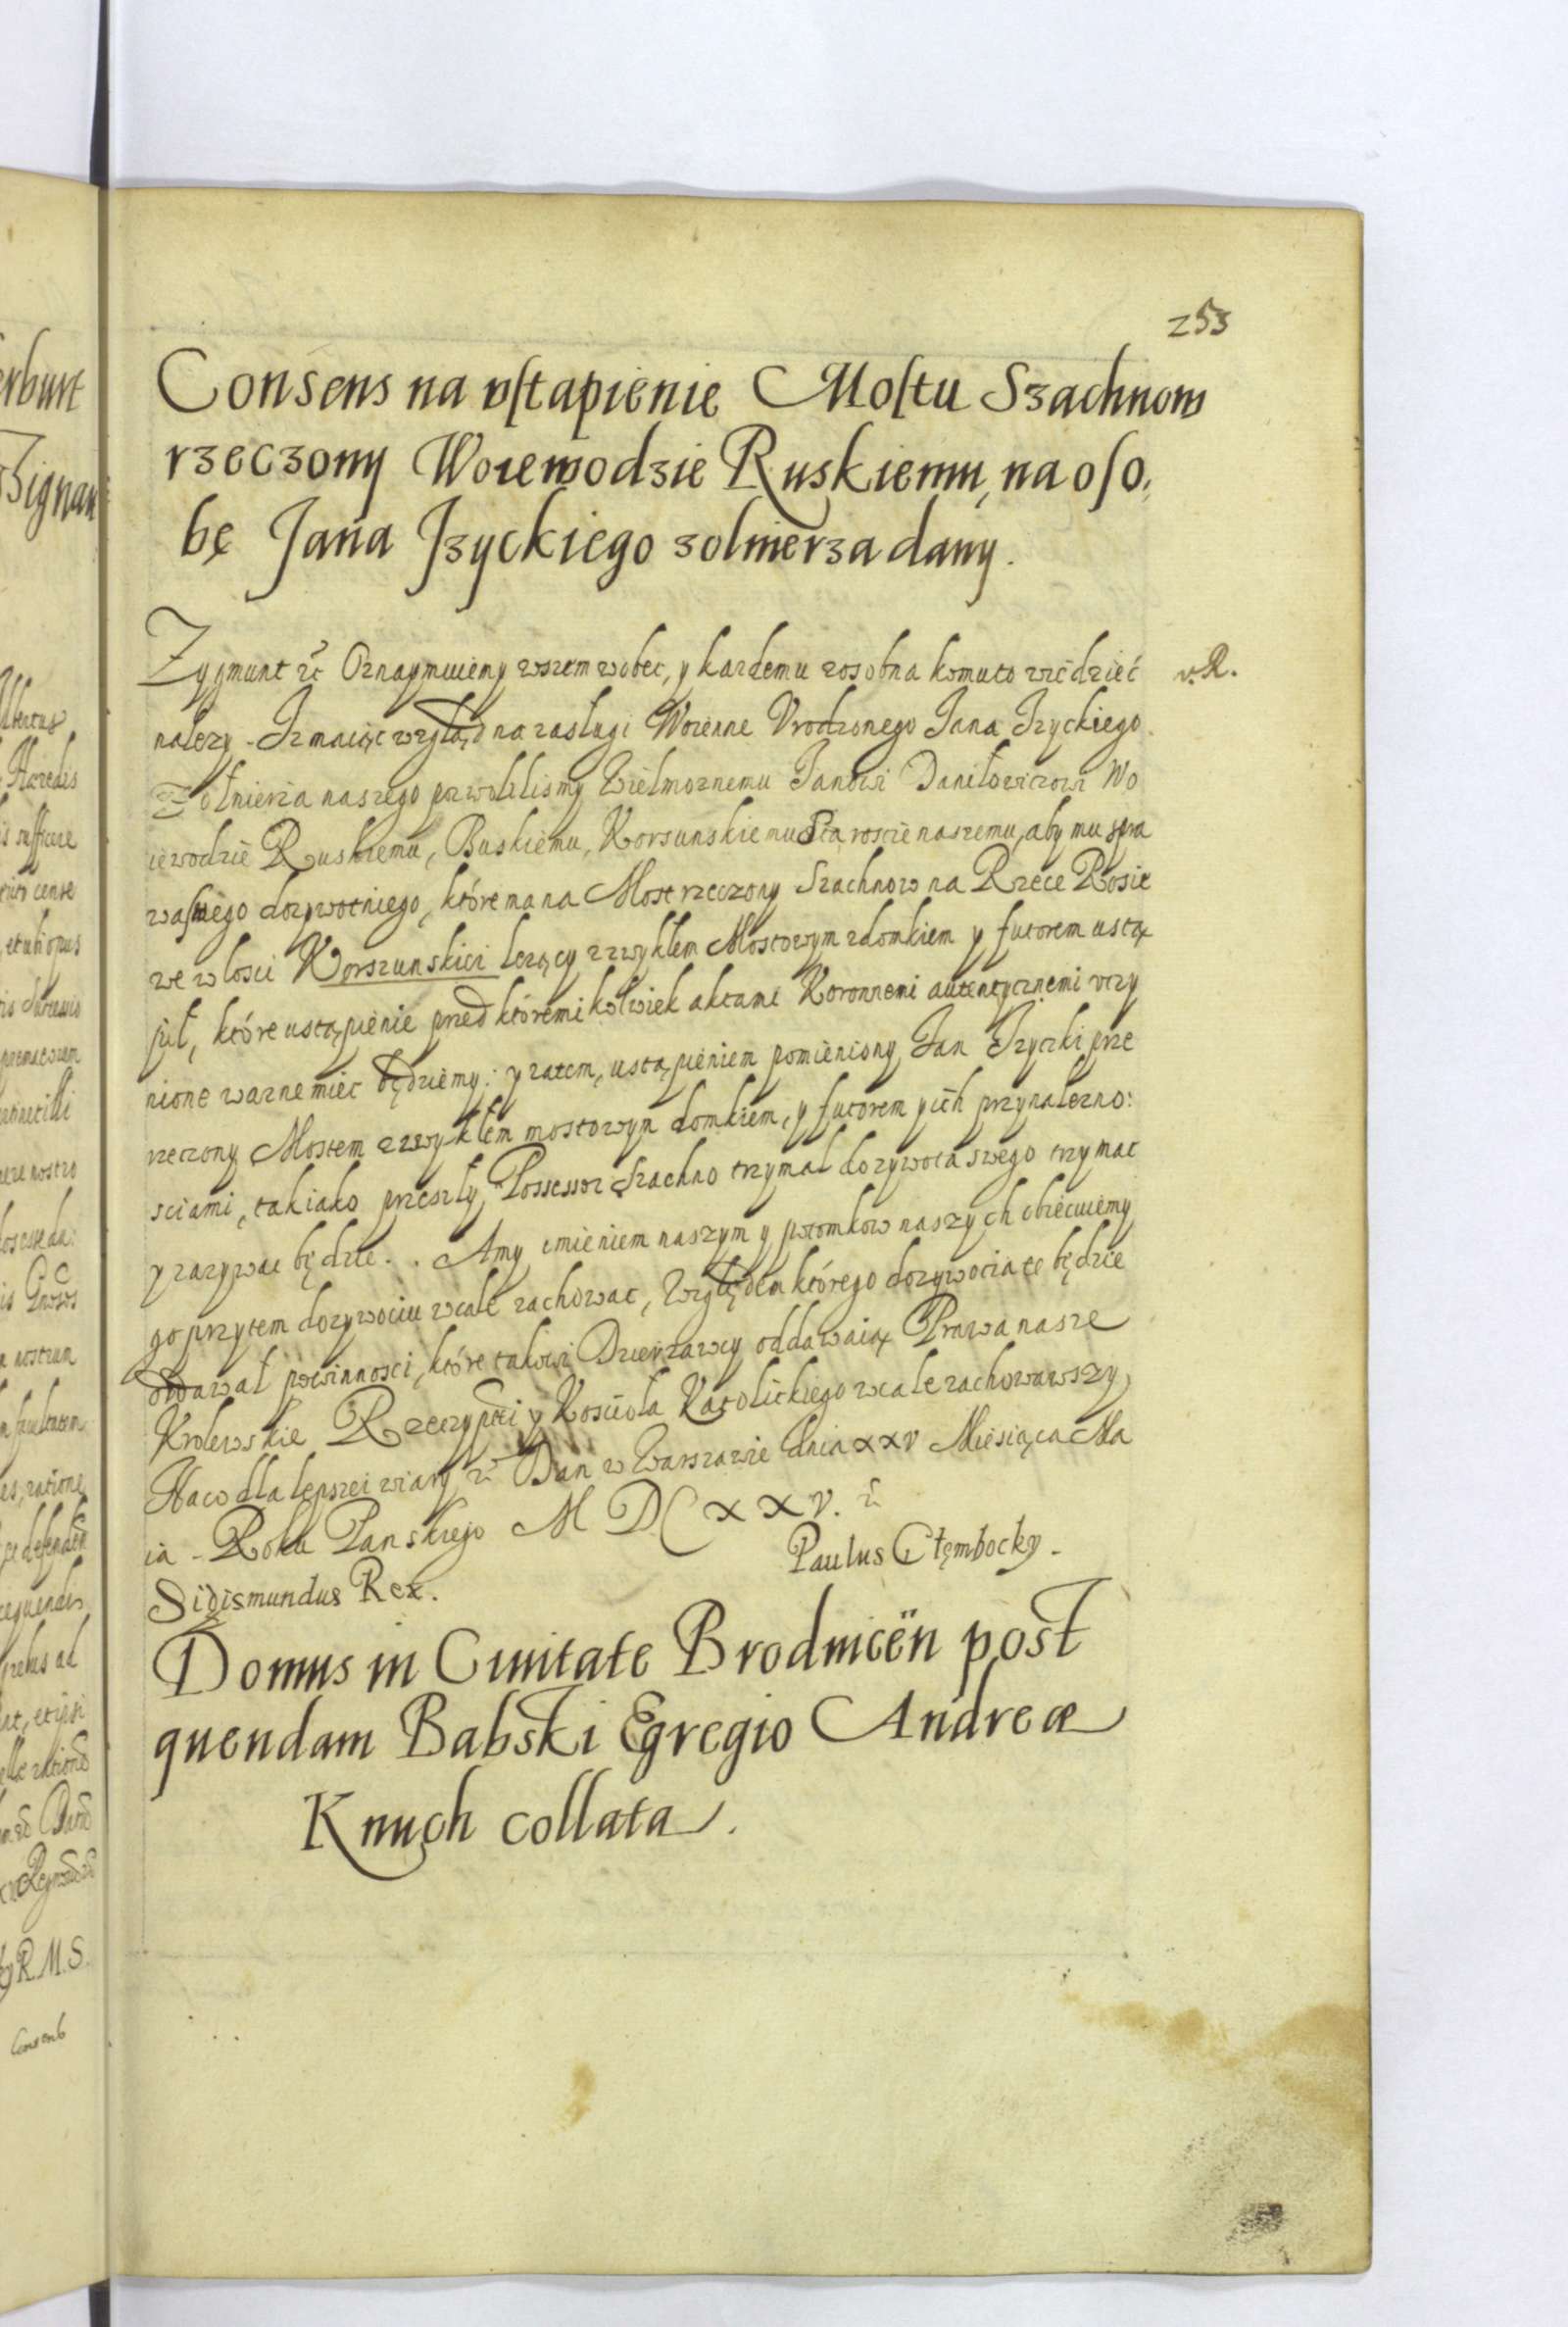 253
Consens na vstąpienie Mostu Szachnow
rzeczony Woiewodzie Ruskiemu, na oso,
bę Jana Jzyckiego zolnierza dany.
Zygmunt etc Oznaymuiemy wszem wobec, y kazdemu zosobna komuto wiedzieć
v. R.
nalezy - Iz maiąc wzgląd na zasługi Woienne Vrodzonego Jana Jzyckiego
Zołnierza naszego pozwolilismy Wielmoznemu Janowi Daniłowiczowi Wo
iewodzie Ruskiemu, Buskiemu, Korsunskiemu Staroscie naszemu, aby mu spra
wa swego dozywotniego, które ma na Most rzeczony Szachnow na Rzece Rosie
we włosci Korszunskiei lezący zzwykłem Mostowym zdomkiem y futorem ustą
pił, które ustąpienie przed któremikolwiek aktami Koronnemi autentycznemi vczy
nione wazne miec będziemy: y zatem, ustąpieniem pomieniony Jan Jzyczki prze
rzeczony Mostem zzwykłem mostowym domkiem, y futorem y ich przynalezno:
sciami, tak iako przeszły Possessor Szachno trzymał do zywota swego trzymac
y zazywac będzie. . Amy imieniem naszym y potomkow naszych obiecuiemy
go przytem dozywociu wcale zachowac, Względem którego dozywocia te będzie
oddawał powinnosci, które takowi Dzierzawcy oddawaią Prawa nasze
Krolewskie Rzeczyptei y Kosciola Katolickiego wcale zachowawszy,
Naco dla lepszei wiary etc Dan w Warszawie dnia xxv Miesiąca Ma
ia - Roku Panskiego M DC xxv. etc
Paulus Cłembocky.
Sigismundus Rex.
Domus in Ciuitate Brodnicen post
quendam Babski Egregio Andreæ
Knuch collata.